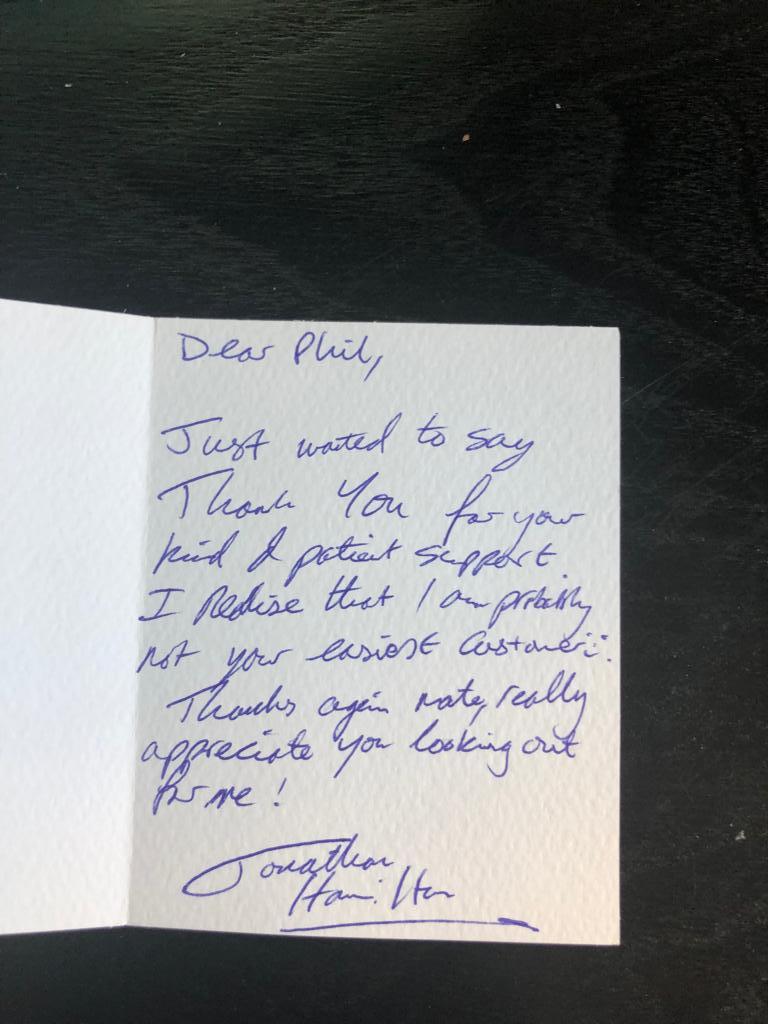 Dear Phil,
Just wanted to say
Thank You for your
kind & patient support
I Realise that I am probably
not your easiest customer!!
Thanks again mate, really
appreciate you looking out
for me!
Jonathan
Hamilton